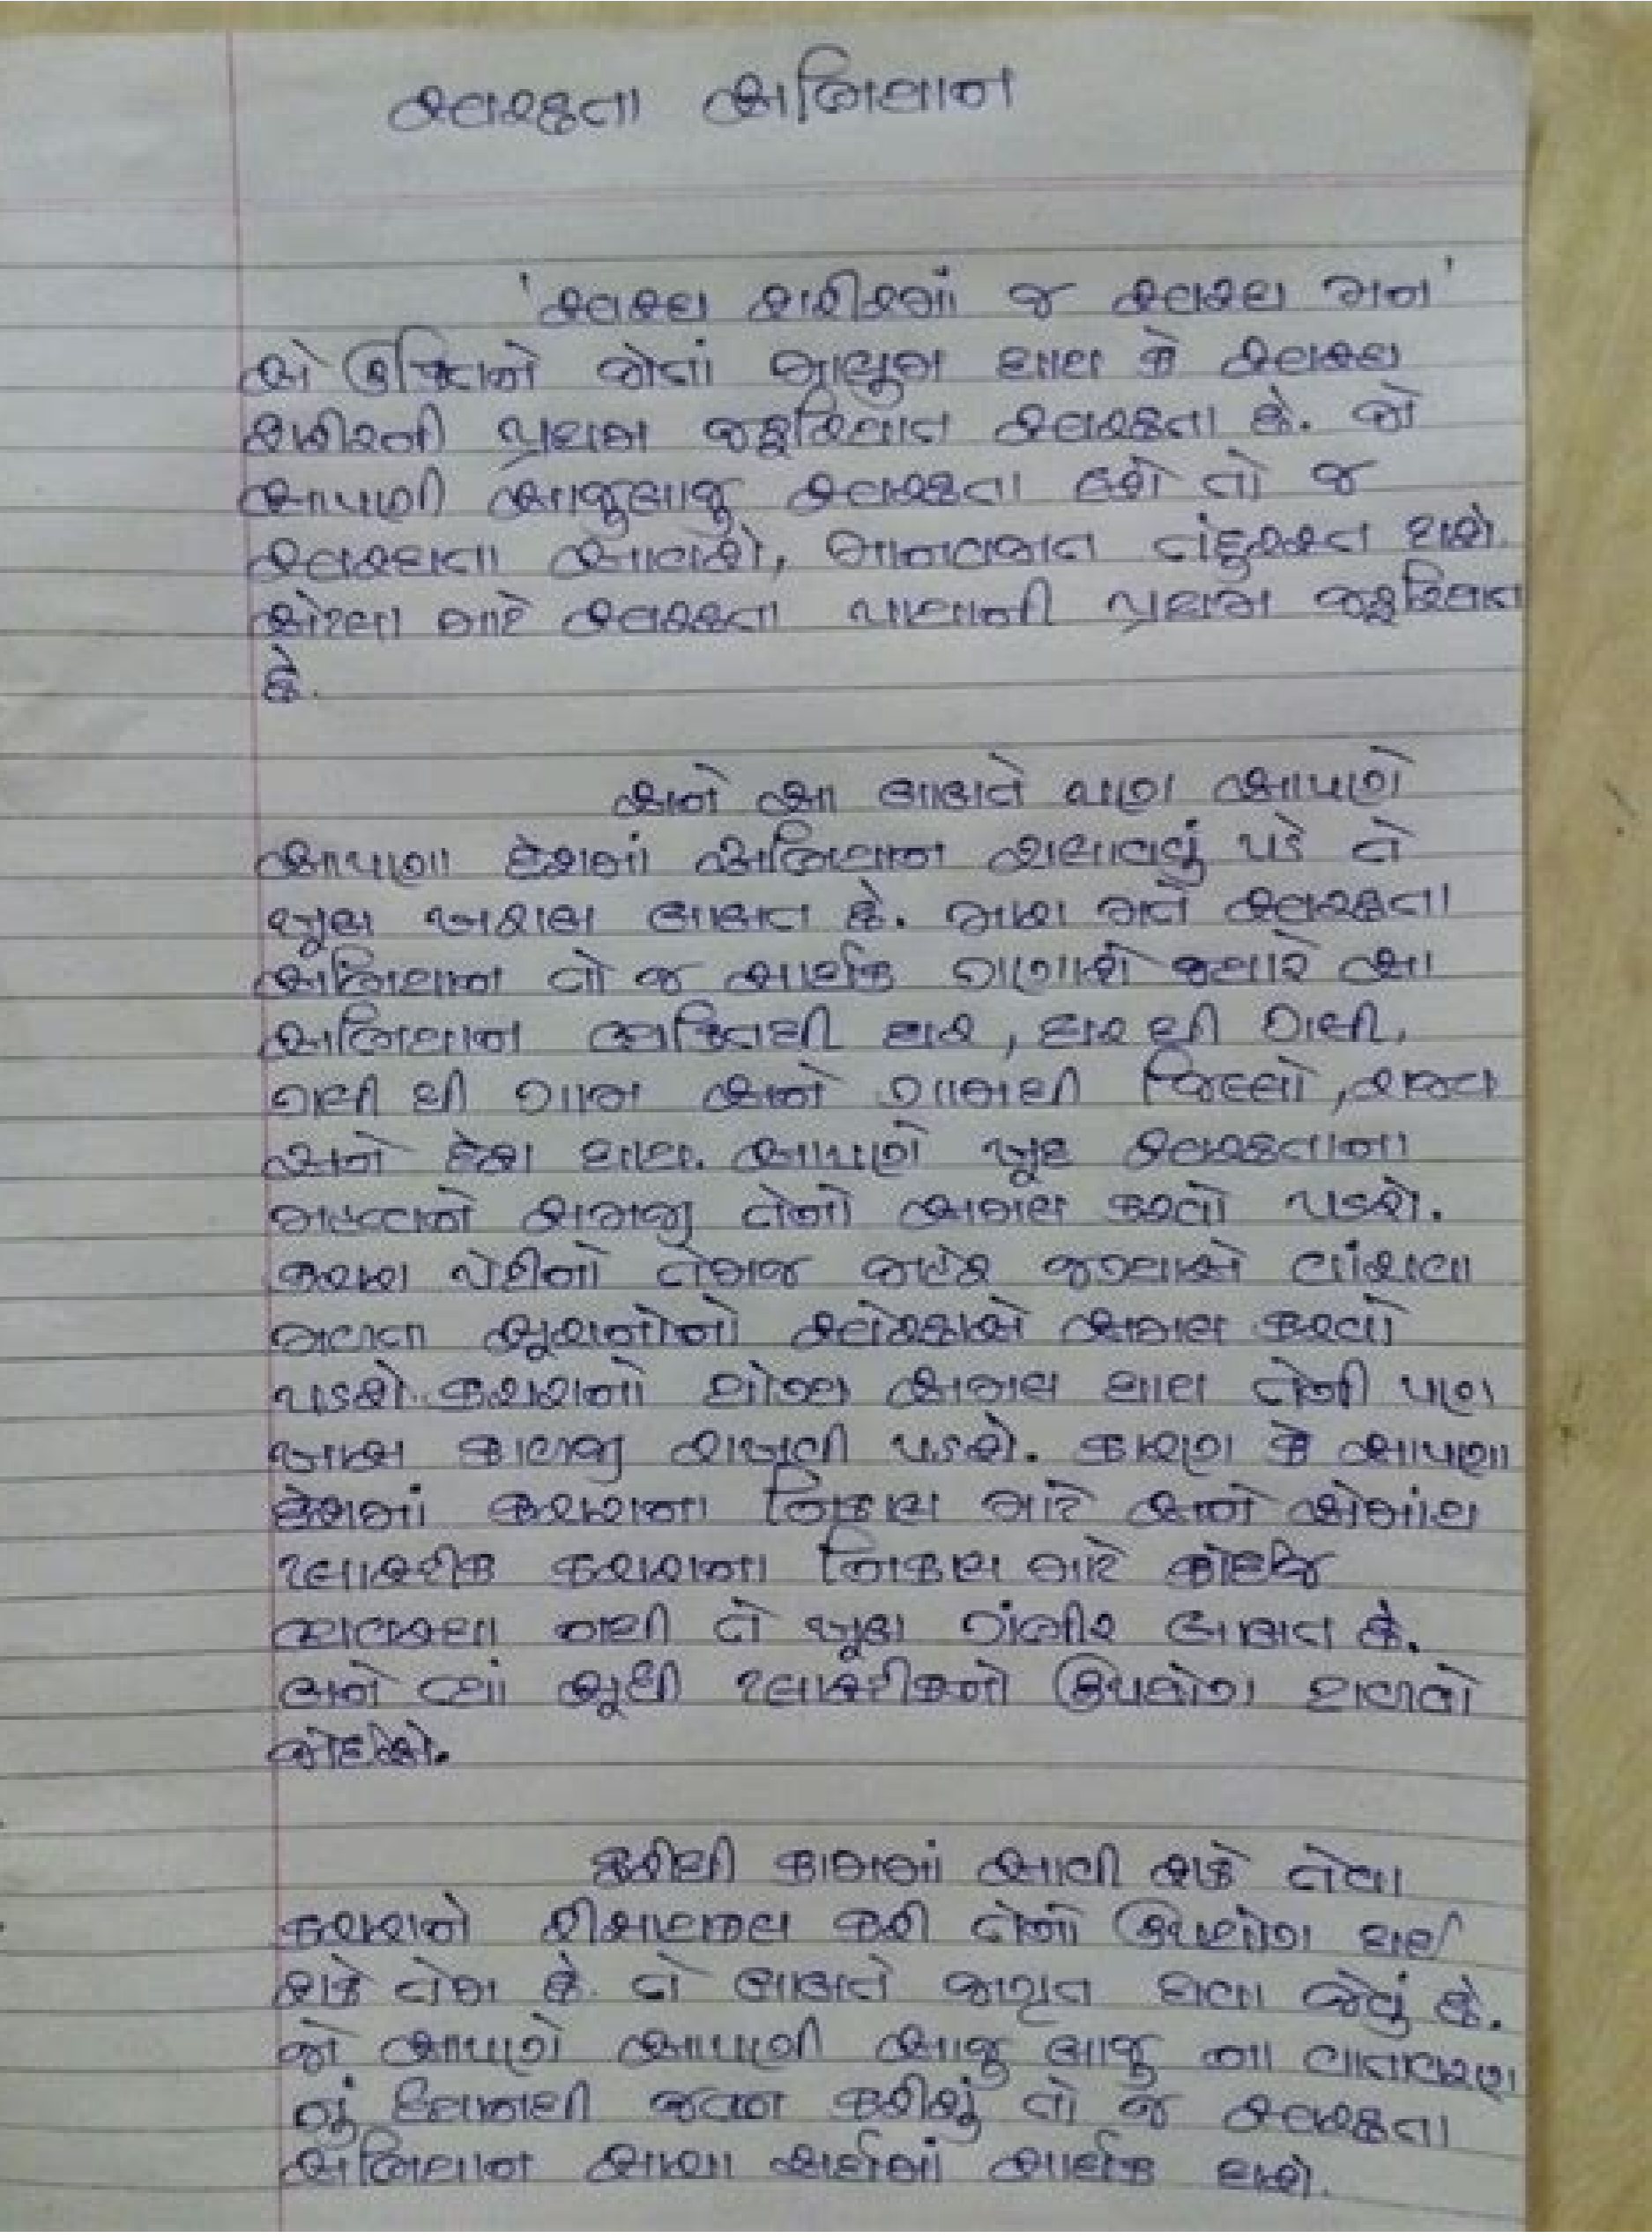 સ્વચ્છતા અભિયાન
'સ્વસ્થ શરીરમાં જ સ્વસ્થ મન'
એ ઉક્તિને જોતાં માલુમ થાય કે સ્વસ્થ
શરીરની પ્રથમ જરૂરિયાત સ્વચ્છતા છે. જો
આપણી આજુબાજુ સ્વચ્છતા હશે તો જ
સ્વસ્થતા આવશે, માનવજાત તંદુરસ્ત થશે.
એટલા માટે સ્વચ્છતા પાયાની પ્રથમ જરૂરિયાત
છે.
અને આ બાબતે પણ આપણે
આપણા દેશમાં અભિયાન ચલાવવું પડે તે
ખૂબ ખરાબ બાબત છે. મારા મતે સ્વચ્છતા
અભિયાન તો જ સાર્થક ગણાશે જ્યારે આ
અભિયાન વ્યક્તિથી ઘર, ઘર થી ગલી,
ગલી થી ગામ અને ગામથી જિલ્લો, રાજ્ય
અને દેશ થાય. આપણે ખૂદ સ્વચ્છતાના
મહત્વને સમજી તેનો અમલ કરવો પડશે.
કચરા પેટીનો તેમજ જાહેર જગ્યાએ વાંચવા
મળતા સૂચનોનો સ્વેચ્છાએ અમલ કરવો
પડશે. કચરાનો યોગ્ય અમલ થાય તેની પણ
ખાસ કાળજી રાખવી પડશે. કારણ કે આપણા
દેશમાં કચરાના નિકાલ માટે અને એમાંય
પ્લાસ્ટીક કચરાના નિકાલ માટે કોઈજ
વ્યવસ્થા નથી તે ખૂબ ગંભીર બાબત છે.
બને ત્યાં સૂધી પ્લાસ્ટીકનો ઉપયોગ ટાળવો
જોઈએ.
ફરીથી કામમાં આવી શકે તેવા
કચરાને રીસાયકલ કરી તેનો ઉપયોગ થઈ
શકે તેમ છે. તે બાબતે જાગૃત થવા જેવું છે.
જો આપણે આપણી આજુ બાજુ ના વાતાવરણ
નું ધ્યાનથી જતન કરીશું તો જ સ્વચ્છતા
અભિયાન સાચા અર્થમાં સાર્થક થશે.